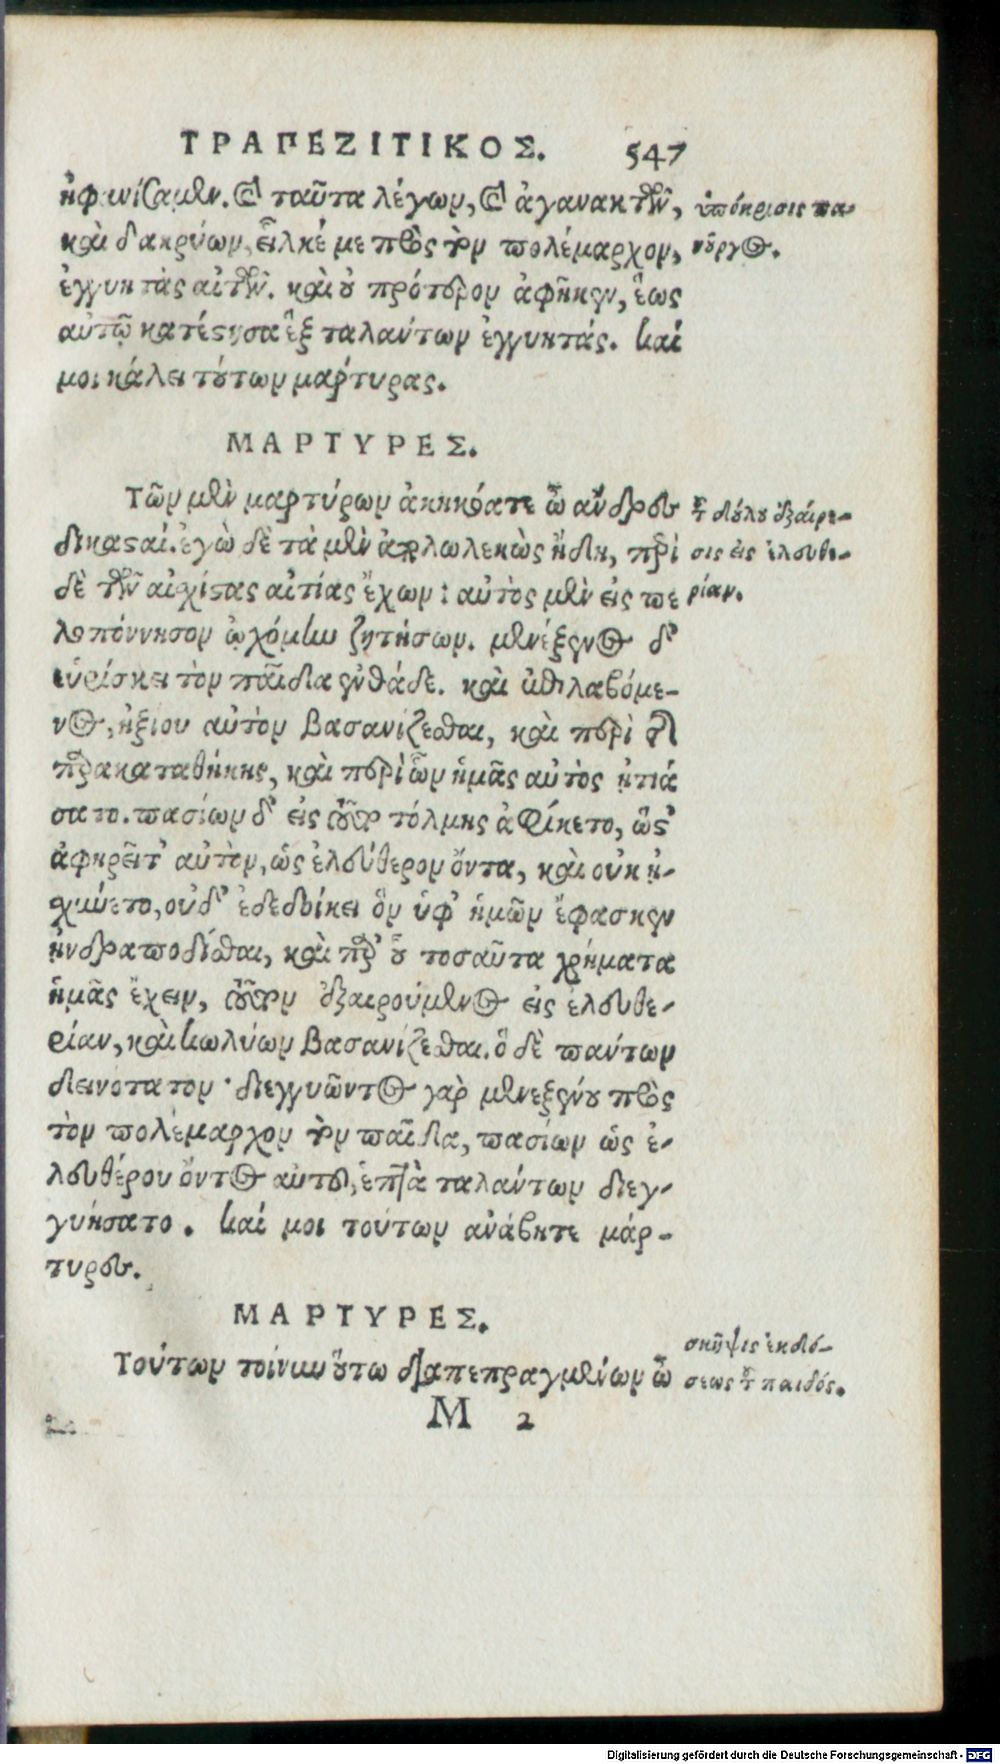 ΤΡΑΠΕΖΙΤΙΚΟΣ. 547
ἠφανίσαμεν. καὶ ταῦτα λέγων, καὶ ἀγανακτῶν,
καὶ δακρύων, εἷλκέ με πρὸς τὸν πολέμαρχον,
ἐγγυητὰς αἰτῶν. καὶ οὐ πρότερον ἀφῆκεν, ἕως
αὐτῷ κατέστησα ἓξ ταλάντων ἐγγυητάς. καί
μοι κάλει τούτων μάρτυρας.
ὑπόκρισις πα-
νοῦργος.
ΜΑΡΤΥΡΕΣ.
Τῶν μὲν μαρτύρων ἀκηκόατε ὦ ἄνδρες
δικασταί. ἐγὼ δὲ τὰ μὲν ἀπολωλεκὼς ἤδη, περὶ
δὲ τῶν αἰσχίστας αἰτίας ἔχων: αὐτὸς μὲν εἰς πε
λοπόννησον ᾠχόμην ζητήσων. μενέξενος δ'
εὑρίσκει τὸν παῖδα ἐνθάδε. καὶ ἐπιλαβόμε-
νος, ἠξίου αὐτὸν βασανίζεσθαι, καὶ περὶ τῆς
παρακαταθήκης, καὶ περὶ ὧν ἡμᾶς αὐτὸς ᾐτιά
σατο. πασίων δ' εἰς τοῦτο τόλμης ἀφίκετο, ὥς'
ἀφῃρεῖτ' αὐτὸν, ὡς ἐλεύθερον ὄντα, καὶ οὐκ ᾐ-
σχύνετο, οὐδ' ἐδεδοίκει ὃν ὑφ' ἡμῶν ἔφασκεν
ἠνδραποδίσθαι, καὶ παρ' οὗ τοσαῦτα χρήματα
ἡμᾶς ἔχειν, τοῦτον ἐξαιρούμενος εἰς ἐλευθε-
ρίαν, καὶ κωλύων βασανίζεσθαι. ὃ δὲ πάντων
δεινότατον· διεγγυῶντος γὰρ μενεξένου πρὸς
τὸν πολέμαρχον τὸν παῖδα, πασίων ὡς ἐ-
λευθέρου ὄντος αὐτοῦ, ἑπτὰ ταλάντων διεγ-
γυήσατο. καί μοι τούτων ἀνάβητε μάρ-
τυρες.
τοῦ δούλου ἐξαίρε-
σις εἰς ἐλευθε-
ρίαν.
ΜΑΡΤΥΡΕΣ.
Τούτων τοίνυν οὕτω διαπεπραγμένων ὦ
σκῆψις ἐκδό-
σεως τοῦ παιδός.
M 2